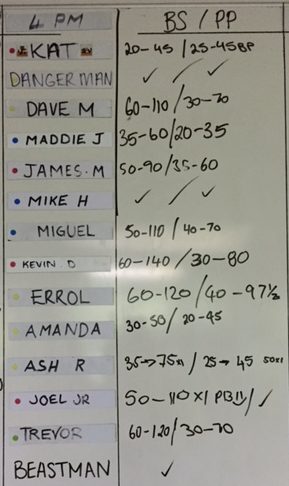 4 PM BS / PP
KAT 20-45 / 25-45BP
DANGERMAN ✓ / ✓
DAVE M 60-110 / 30-70
MADDIE J 35-60/20-35
JAMES.M 50-90/35-60
MIKE H ✓ / ✓
MIGUEL 50-110 / 40-70
KEVIN.D 60-140 / 30-80
ERROL 60-120/40-97½
AMANDA 30-50/ 20-45
ASH R 35→75x1 / 25→45 50x1
JOEL JR 50-110x1 PB!! / ✓
TREVOR 60-120/30-70
BEASTMAN ✓